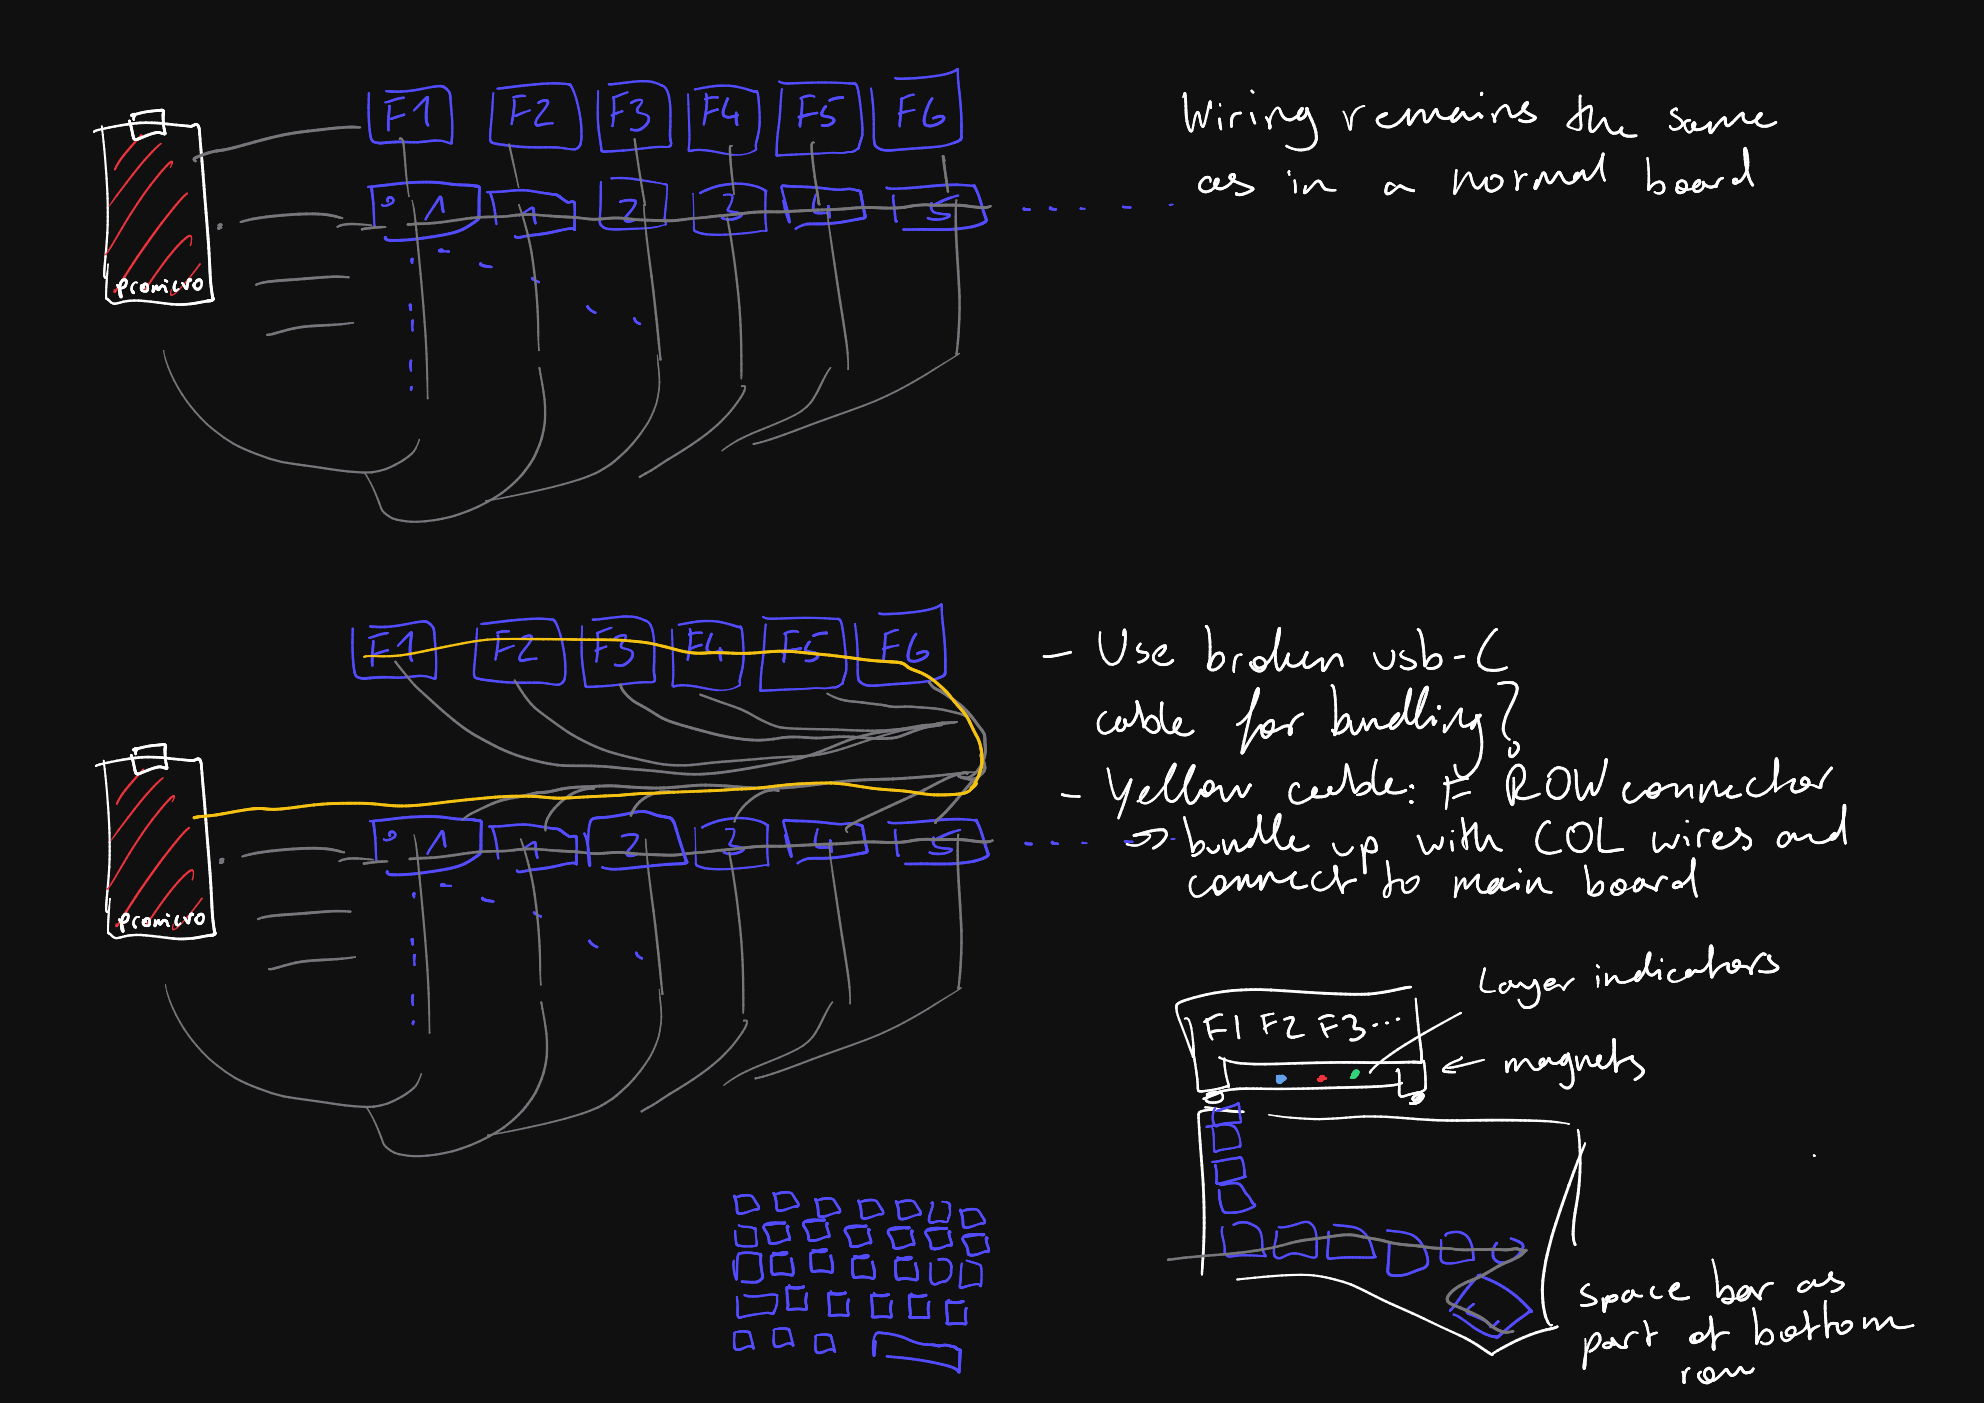 F1 F2 F3 F4 F5 F6
Wiring remains the same
as in a normal board
° 1 1 2 3 4 5
promicro
F1 F2 F3 F4 F5 F6
- Use broken usb-C
cable for bundling?
- Yellow cable: F ROW connector
⇒ bundle up with COL wires and
connect to main board
° 1 1 2 3 4 5
promicro
Layer indicators
F1 F2 F3...
← magnets
Space bar as
part of bottom
row